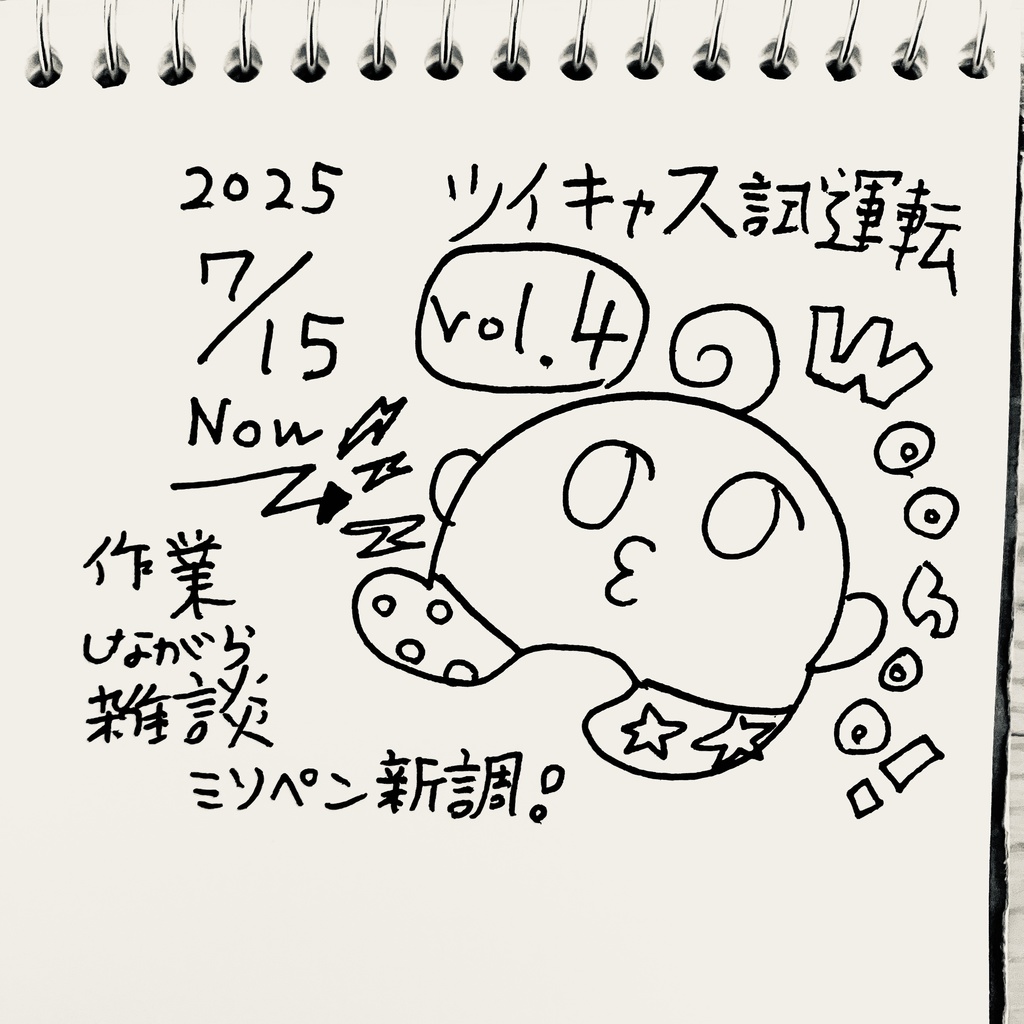 2025
7/15
Now
ツイキャス試運転
vol.4
作業
しながら
雑談
ミソペン新調!